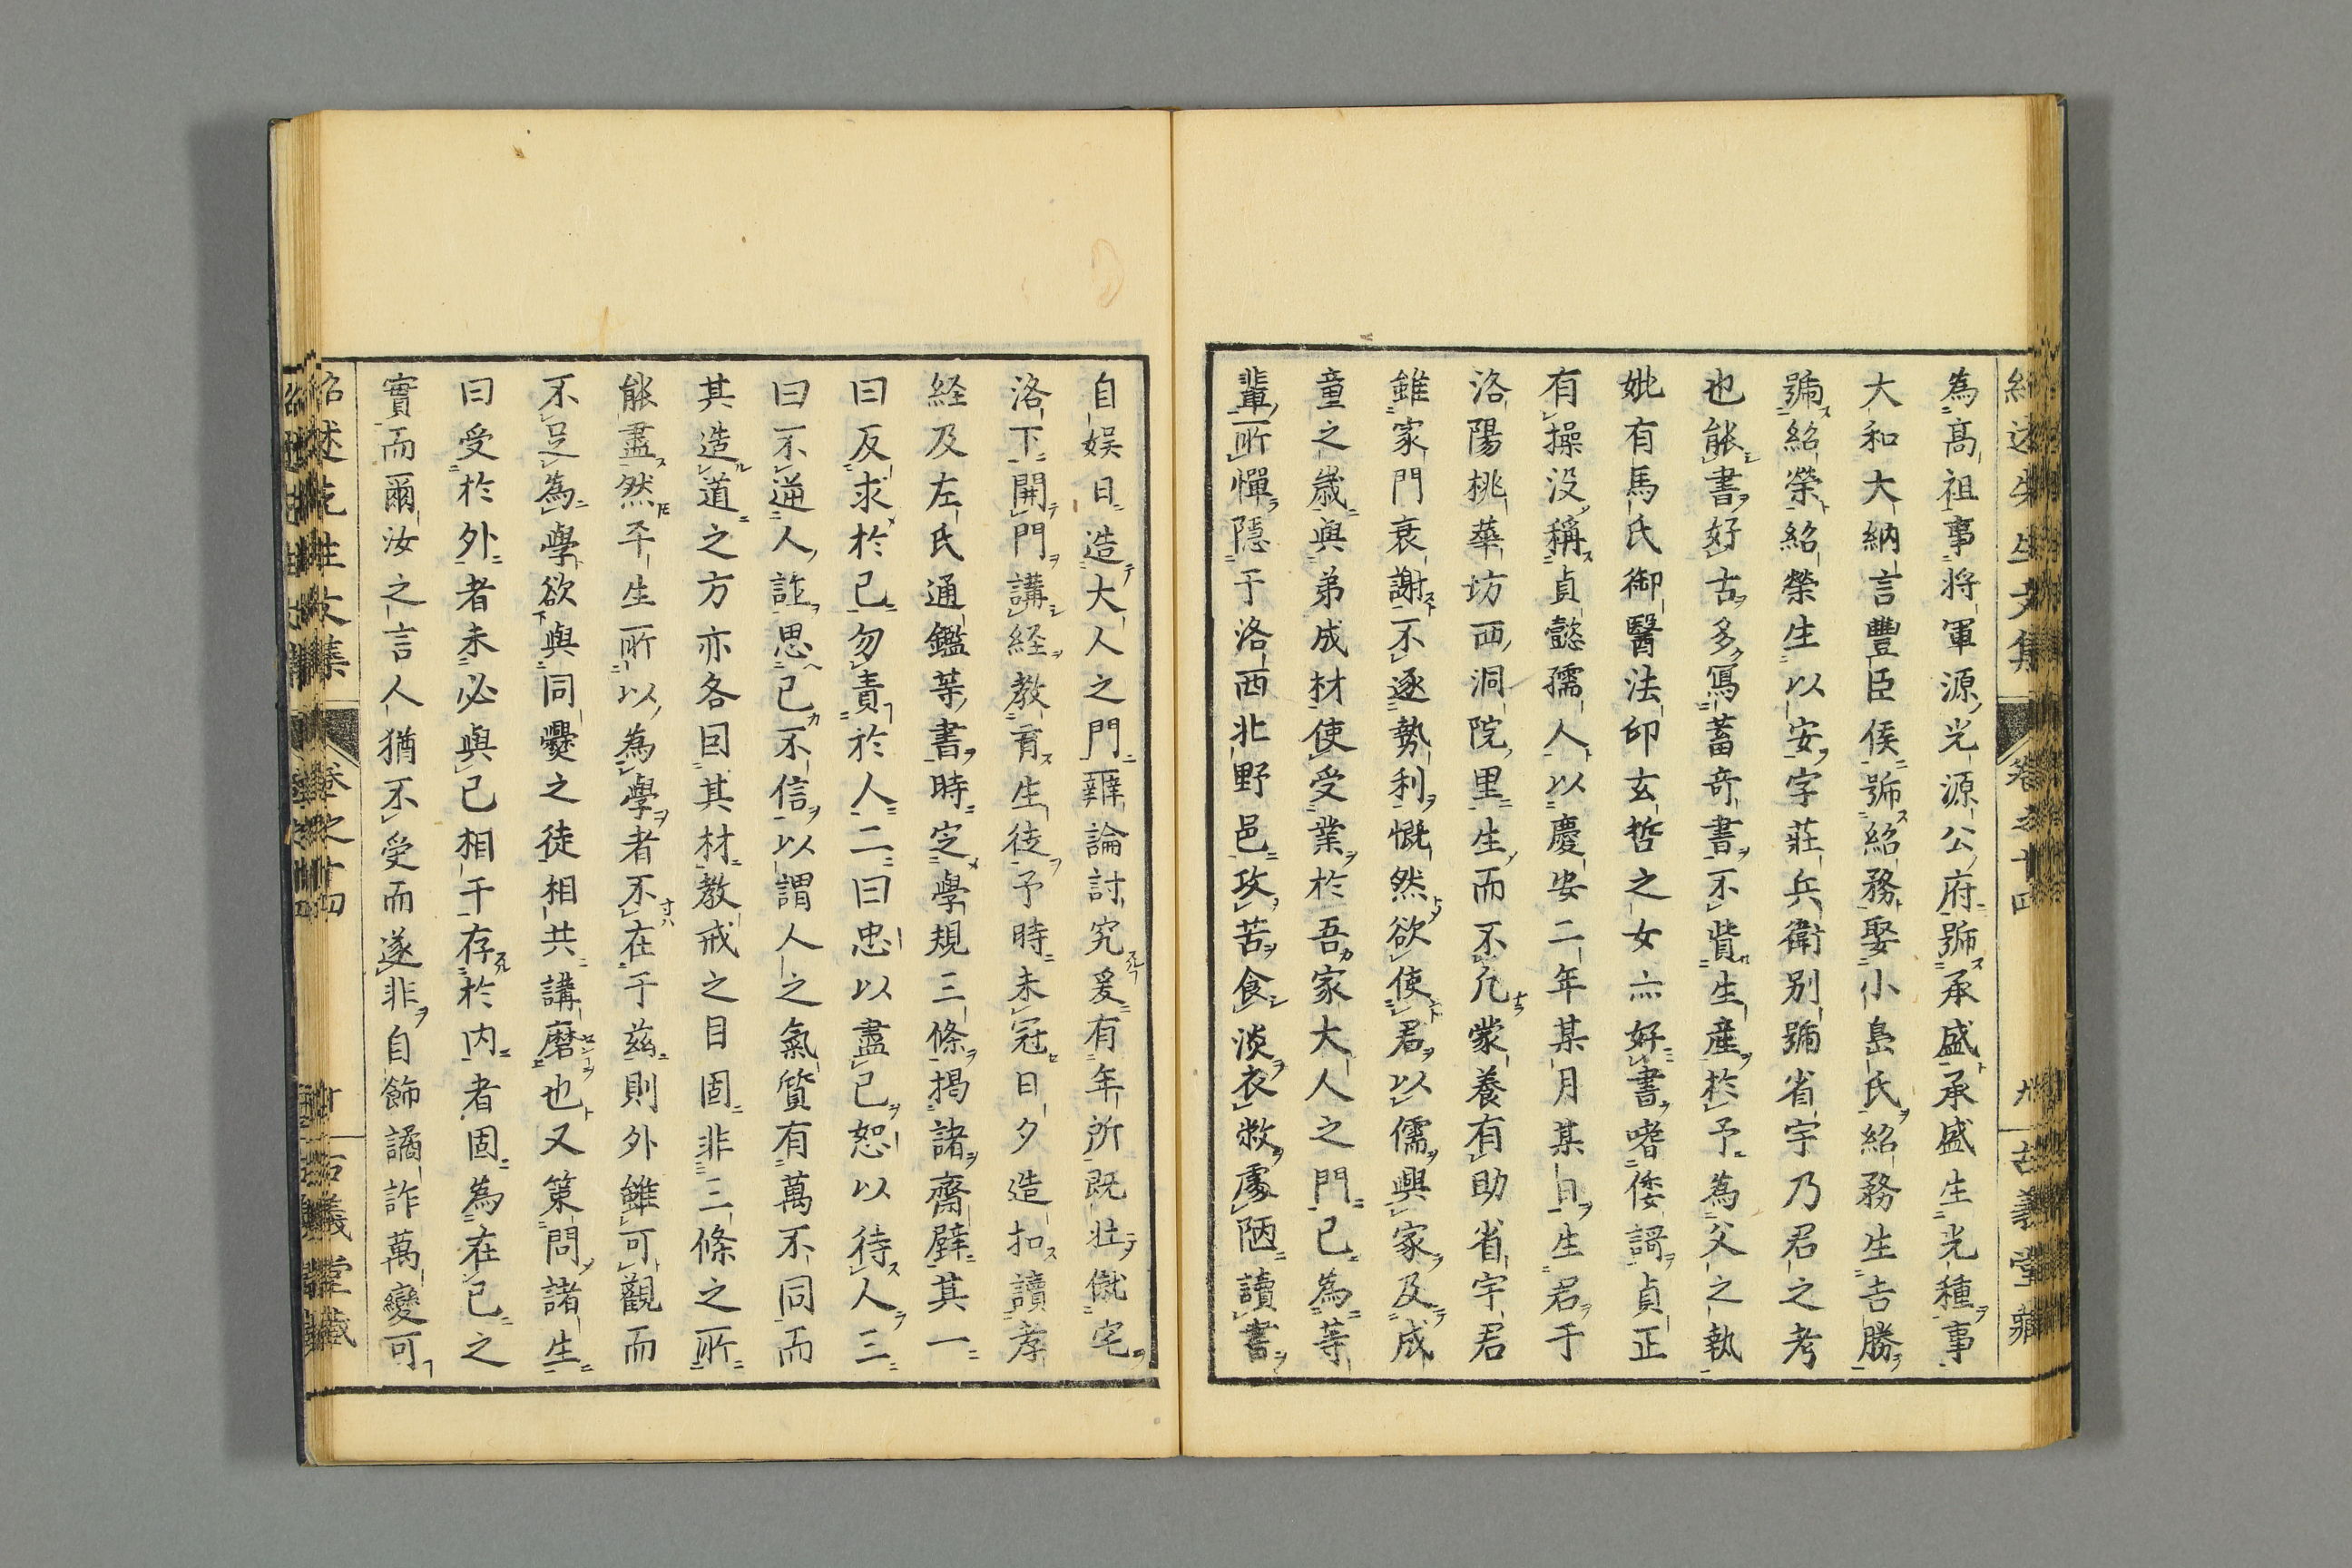 為高祖事將軍源光源公府號承盛承盛生光種事
大和大納言豐臣侯號紹務娶小島氏紹務生吉勝
號紹榮紹榮生以安字莊兵衛别號省宇乃君之考
也能書好古多寫蓄奇書不貲生產於予為父之執
妣有馬氏御醫法印玄哲之女亦好書嗜倭謌貞正
有操没稱貞懿孺人以慶安二年某月某日生君于
洛陽桃華坊西洞院里生而不凢蒙養有助省宇君
雖家門衰謝不逐勢利慨然欲使君以儒興家及成
童之歲與弟成材使受業於吾家大人之門已為等
輩所憚隱于洛西北野邑攻苦食淡衣敝處陋讀書
自娱日造大人之門辨論討究爰有年所既壮僦宅
洛下開門講経教育生徒予時未冠日夕造扣讀孝
経及左氏通鑑等書時定學規三條揭諸齋壁其一
曰反求於己勿責於人二曰忠以盡己恕以待人三
曰不逆人詐思己不信以謂人之氣質有萬不同而
其造道之方亦各因其材教戒之目固非三條之所
能盡然平生所以為學者不在于茲則外雖可觀而
不足為學欲與同爨之徒相共講磨也又策問諸生
曰受於外者未必與己相干存於内者固為在己之
實而爾汝之言人猶不受而遂非自飾譎詐萬變可
紹述先生文集 卷之十四 古義堂藏